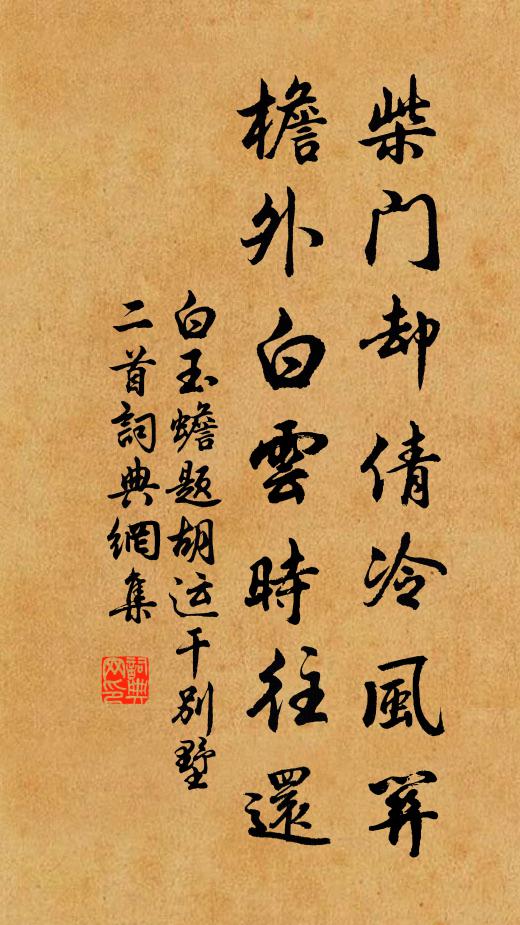 柴门却倩冷風關
檐外白雲時往還
白玉蟾题胡运干别墅
二首詞典網集
詞典网印